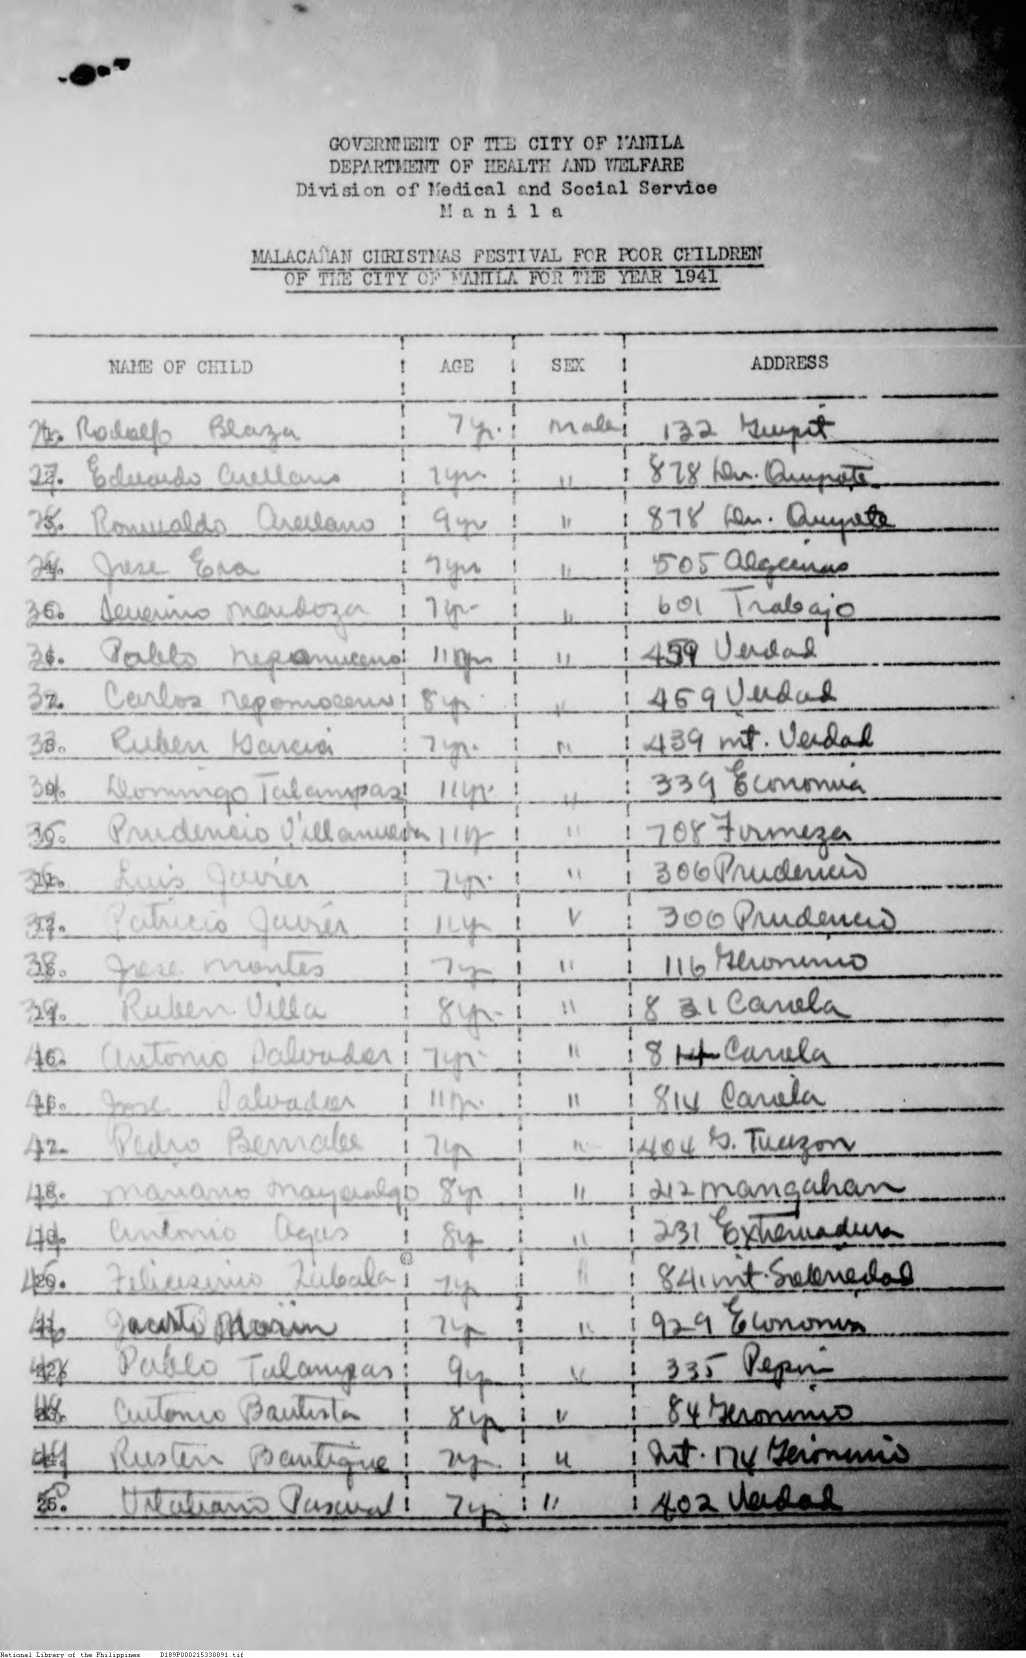 GOVERNMENT OF THE CITY OF MANILA
DEPARTMENT OF HEALTH AND WELFARE
Division of Medical and Social Service
M a n i l a
MALACAÑAN CHRISTMAS FESTIVAL FOR POOR CHILDREN
OF THE CITY OF MANILA FOR THE YEAR 1941
NAME OF CHILD AGE SEX ADDRESS
26. Rodolfo Blaza 7 yr. male 132
27. Eduardo Arellano 7 yrs " 878
28. Romualdo Arellano 9 yr " 878
29. Jose Era 7 yrs " 505 Algeciras
30. Severino Mendoza 7 yr " 601 Trabajo
31. Pablo Nepomuceno 11 yrs " 459 Verdad
32. Carlos Nepomoceno 8 yr " 459 Verdad
33. Ruben Garcia 7 yr. " 439 int. Verdad
34. Domingo Talampas 11 yr " 339 Economia
35. Prudencio Villanueva 11 yr " 708 Firmeza
36. Luis Javier 7 yr. " 306 Prudencio
37. Patricio Javier 11 yr " 306 Prudencio
38. Jose Montes 7 yr " 116 Geronimo
39. Ruben Villa 8 yr. " 831 Candla
40. Antonio Salvador 7 yr " 814
41. Jose Salvador 11 yr. " 814
42. Pedro 7 yr " 404 G. Tuazon
43. Mariano Mayoralgo 8 yr " 212 Mangahan
44. Antonio Agus 8 yr " 231 Extremadura
45. Zabala 7 yr " 841 int. Soledad
46. Jacinto Marin 7 yr " 929 Economia
47. Pablo Talampas 9 yr " 335 Pepin
48. Antonio Bautista 8 yr " 84 Geronimo
49. 7 yr. " Int. 174 Geronimo
50. Pascual 7 yr " 402 Verdad
National Library of the Philippines D189P000215330891.tif